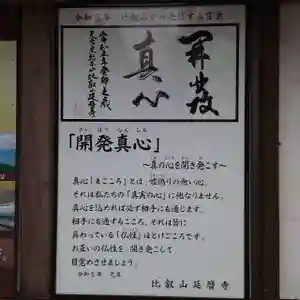 令和五年 比叡山から発信する言葉
開発
真心
かい ほつ しん しん
「開発真心」
～真の心を開き発こす～
真心「まごころ」とは、嘘偽りの無い心。
それは私たちの「真実の心」に他なりません。
真心を込めれば必ず相手にも通じます。
相手にも通ずるこころ、それは皆に
具わっている「仏性」ほとけごころです。
お互いの仏性を 開き発こして、
目覚めさせましょう。
令和五年 元旦
比叡山延暦寺